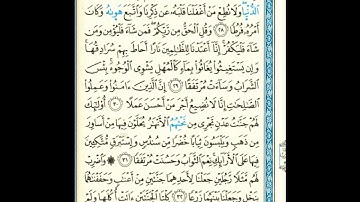 ٱلدُّنۡيَاۖ وَلَا تُطِعۡ مَنۡ أَغۡفَلۡنَا قَلۡبَهُۥ عَن ذِكۡرِنَا وَٱتَّبَعَ هَوَىٰهُ وَكَانَ
أَمۡرُهُۥ فُرُطٗا ٢٨ وَقُلِ ٱلۡحَقُّ مِن رَّبِّكُمۡۖ فَمَن شَآءَ فَلۡيُؤۡمِن وَمَن
شَآءَ فَلۡيَكۡفُرۡۚ إِنَّآ أَعۡتَدۡنَا لِلظَّٰلِمِينَ نَارًا أَحَاطَ بِهِمۡ سُرَادِقُهَاۚ
وَإِن يَسۡتَغِيثُواْ يُغَاثُواْ بِمَآءٖ كَٱلۡمُهۡلِ يَشۡوِي ٱلۡوُجُوهَۚ بِئۡسَ
ٱلشَّرَابُ وَسَآءَتۡ مُرۡتَفَقًا ٢٩ إِنَّ ٱلَّذِينَ ءَامَنُواْ وَعَمِلُواْ
ٱلصَّٰلِحَٰتِ إِنَّا لَا نُضِيعُ أَجۡرَ مَنۡ أَحۡسَنَ عَمَلًا ٣٠ أُوْلَٰٓئِكَ
لَهُمۡ جَنَّٰتُ عَدۡنٖ تَجۡرِي مِن تَحۡتِهِمُ ٱلۡأَنۡهَٰرُ يُحَلَّوۡنَ فِيهَا مِنۡ أَسَاوِرَ
مِن ذَهَبٖ وَيَلۡبَسُونَ ثِيَابًا خُضۡرٗا مِّن سُندُسٖ وَإِسۡتَبۡرَقٖ مُّتَّكِـِٔينَ
فِيهَا عَلَى ٱلۡأَرَآئِكِۚ نِعۡمَ ٱلثَّوَابُ وَحَسُنَتۡ مُرۡتَفَقٗا ٣١ ۞ وَٱضۡرِبۡ
لَهُم مَّثَلٗا رَّجُلَيۡنِ جَعَلۡنَا لِأَحَدِهِمَا جَنَّتَيۡنِ مِنۡ أَعۡنَٰبٖ وَحَفَفۡنَٰهُمَا
بِنَخۡلٖ وَجَعَلۡنَا بَيۡنَهُمَا زَرۡعٗا ٣٢ كِلۡتَا ٱلۡجَنَّتَيۡنِ ءَاتَتۡ أُكُلَهَا وَلَمۡ